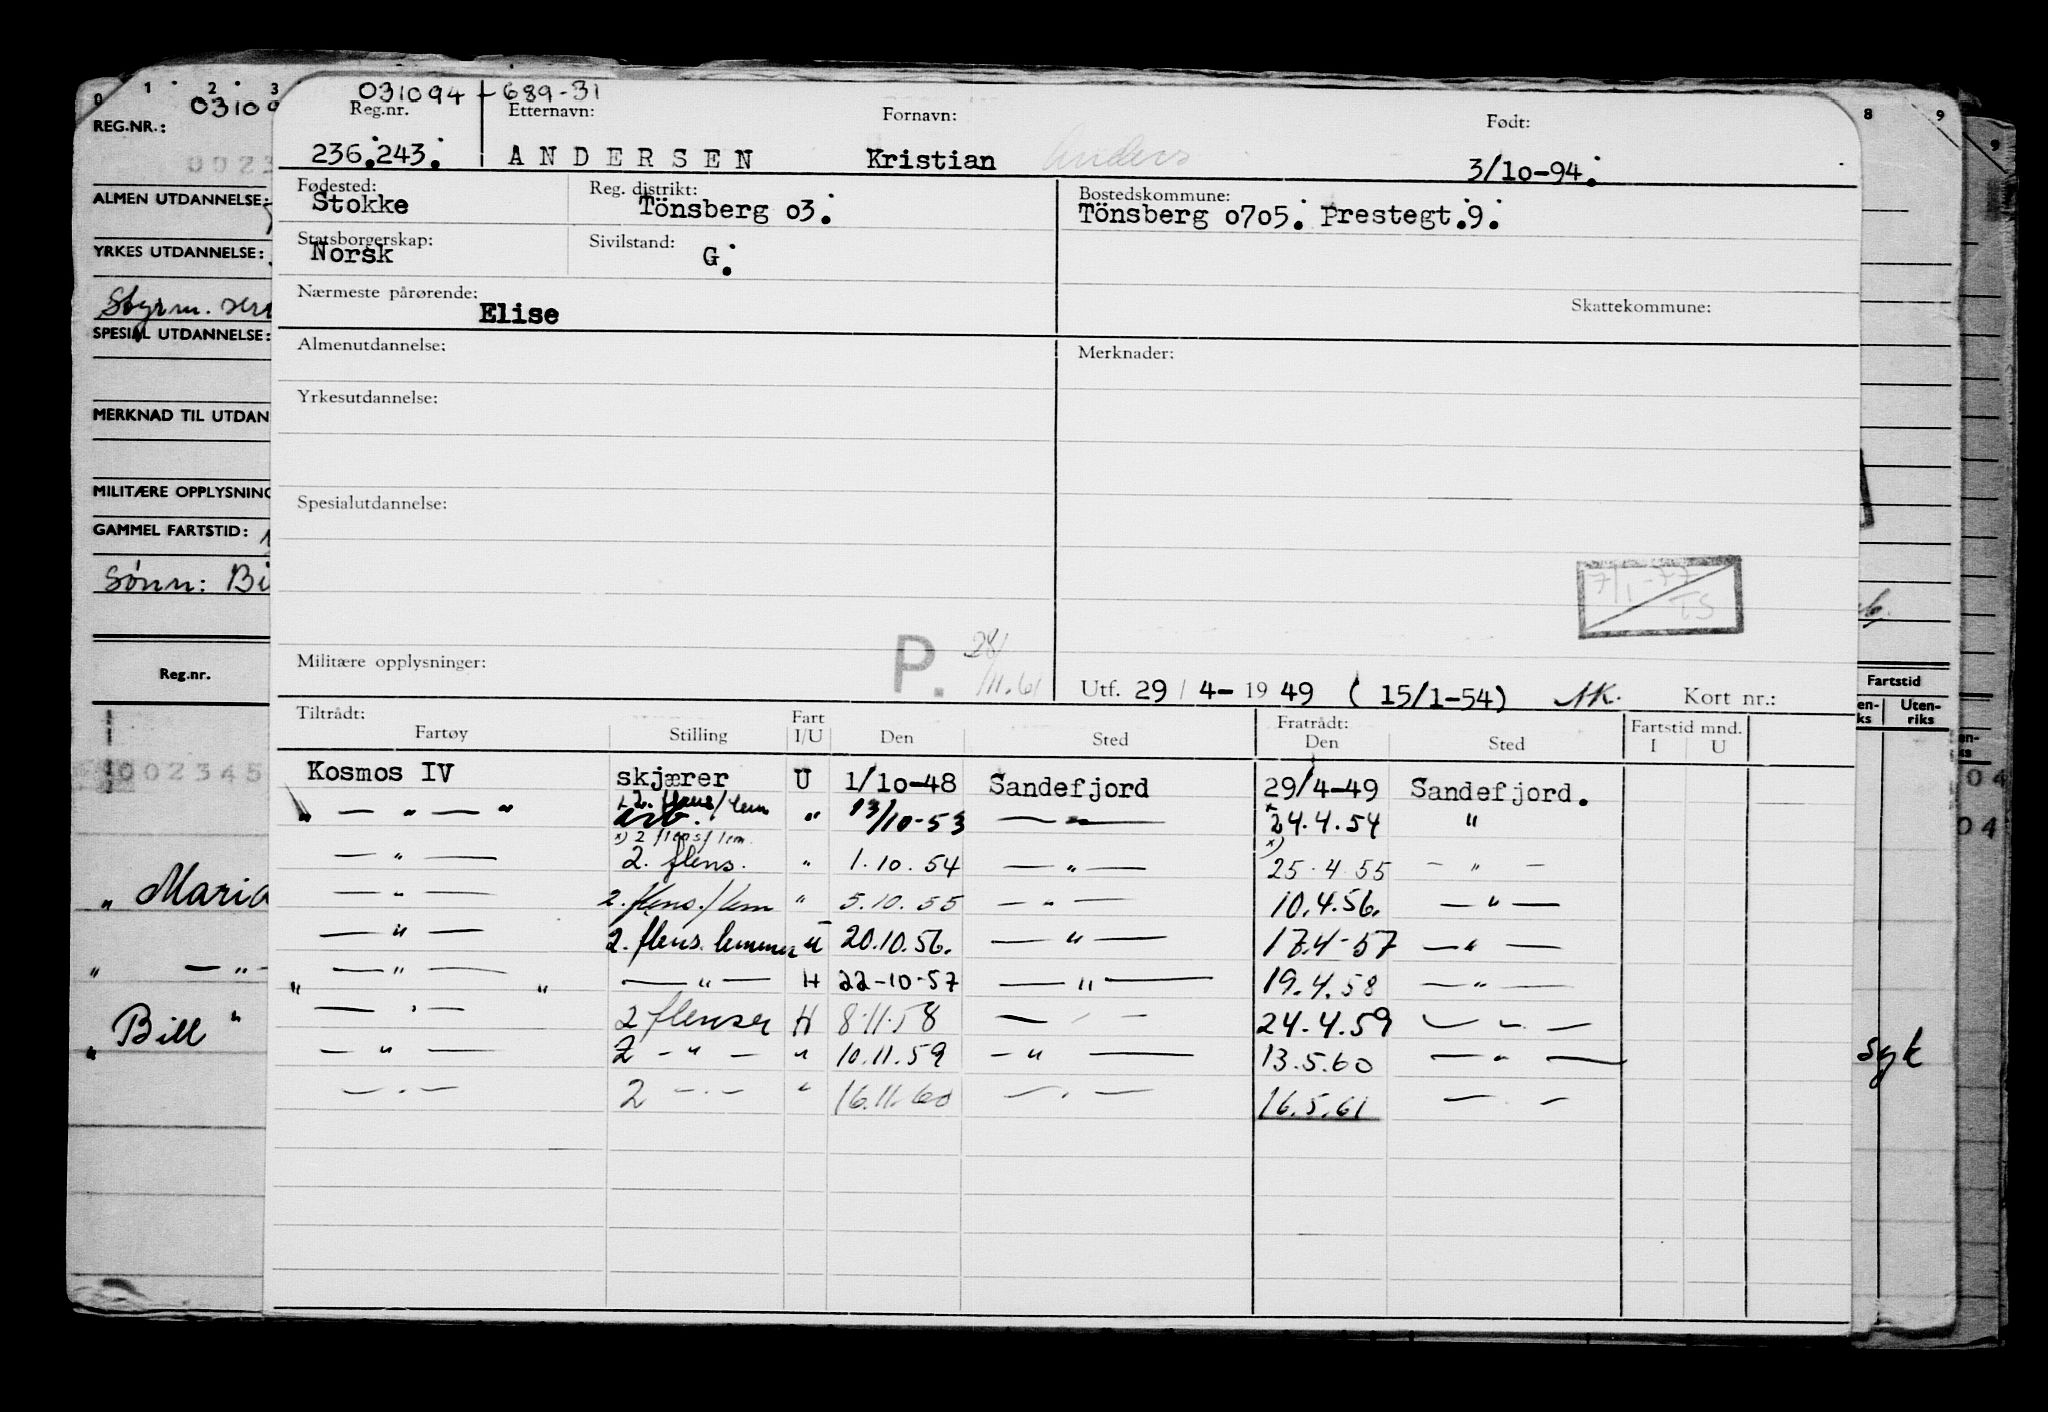 0 1 2 3
03109
REG.NR.:
ALMEN UTDANNELSE:
YRKES UTDANNELSE:
Styrm.
SPESIAL UTDANNELSE:
MERKNAD TIL UTDAN
MILITÆRE OPPLYSNING
GAMMEL FARTSTID:
Sønn: Bi
Reg.nr.
0023458
" Maria
" — " —
" Bill "
031094 - 689-31
Reg.nr. Etternavn: Fornavn: Født:
236.243. ANDERSEN Kristian Anders 3/10-94.
Fødested: Reg. distrikt: Bostedskommune:
Stokke Tönsberg 03. Tönsberg 0705. Prestegt.9.
Statsborgerskap: Sivilstand:
Norsk G.
Nærmeste pårørende: Skattekommune:
Elise
Almenutdannelse: Merknader:
Yrkesutdannelse:
Spesialutdannelse:
7/1-77
TS
Militære opplysninger: P. 28/11.61
Utf. 29/4-1949 (15/1-54) Kort nr.:
Tiltrådt: Fart Fratrådt: Fartstid mnd.
Fartøy Stilling I/U Den Sted Den Sted I U
Kosmos IV skjærer U 1/10-48 Sandefjord 29/4-49 Sandefjord.
" — " — " 2. flens/lem arb. " 13/10-53 — " — 24.4.54 "
x) 2 flens/lem. x)
— " — 2. flens. " 1.10.54 — " — 25.4.55 — " —
— " — 2. flens./lem " 5.10.55 — " — 10.4.56. — " —
— " — 2. flens. lemmer U 20.10.56. — " — 17.4-57 — " —
" — " — " — " — H 22-10-57 — " — 19.4.58 — " —
— " — 2 flenser H 8.11.58 — " — 24.4.59 — " —
— " — 2 — " — " 10.11.59 — " — 13.5.60 — " —
— " — 2 — " — " 16.11.60 — " — 16.5.61 — " —
8 9
Fartstid
Uten-
riks
syk
9
04
04